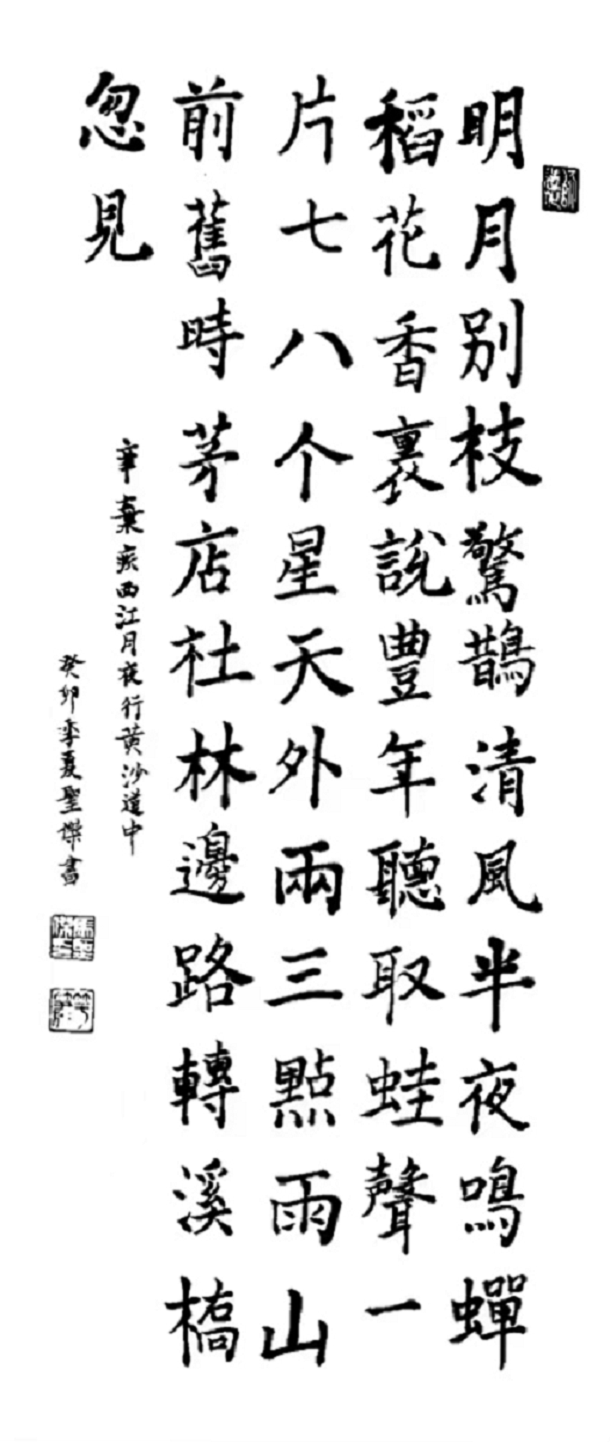 明月别枝驚鵲清風半夜鳴蟬
稻花香裏説豐年聽取蛙聲一
片七八个星天外兩三點雨山
前舊時茅店社林邊路轉溪橋
忽見
辛棄疾西江月夜行黄沙道中
癸卯季夏聖傑書